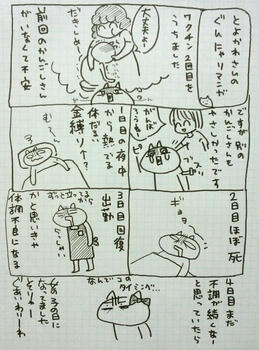 とよかわさんの
ぐんにゃりマンガ
ワクチン2回目を
うちました
大丈夫よ!
だきしめ
前回のかんごしさん
がいなくて不安
ですが別の
かんごしさんも
やさしかったです
がんば
ろうね!
1日目の夜中
から熱でる
体だるい
金縛り!?
む〜
2日目ほぼ死
ギョッ
3日目回復
出勤
かと思いきや
体調不良になる
4日目まだ
不調が続くな〜
と思っていたら
なんでこの
タイミング…
女の子の日に
なってました
とりあ